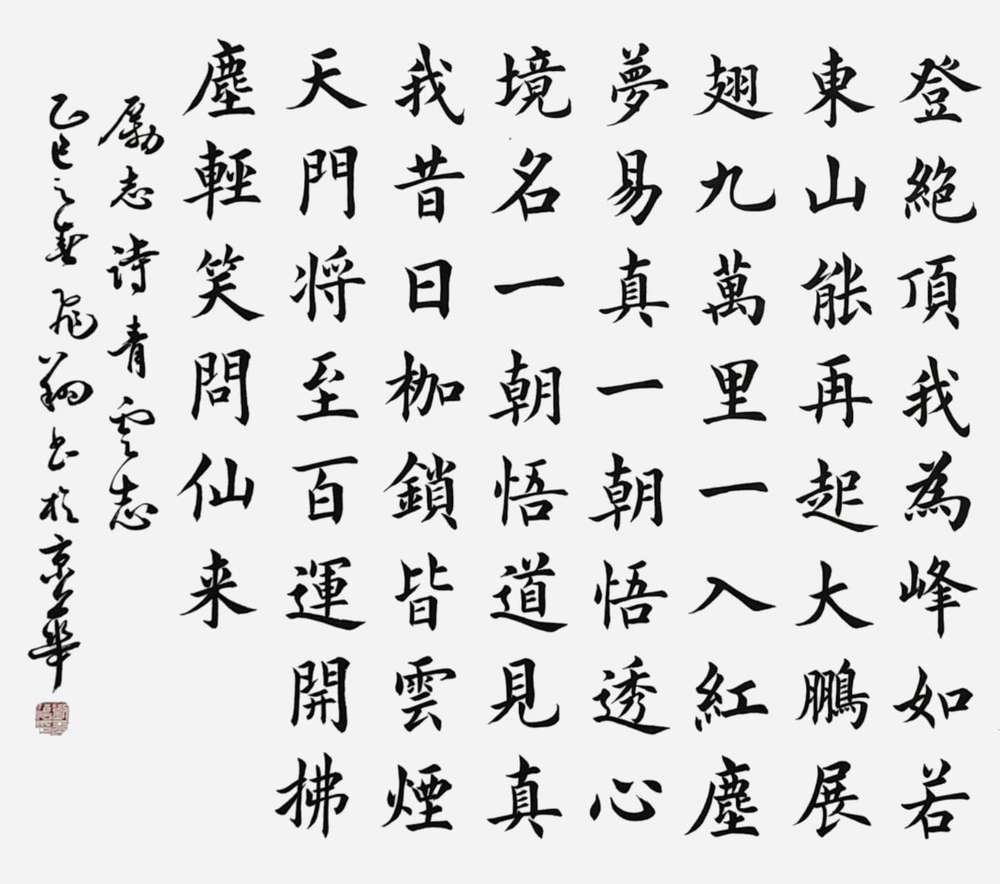 登絕頂我為峰如若
東山能再起大鵬展
翅九萬里一入紅塵
夢易真一朝悟透心
境名一朝悟道見真
我昔日枷鎖皆雲煙
天門将至百運開拂
塵輕笑問仙来
勵志詩青雲志
乙巳之春飛翔书於京華